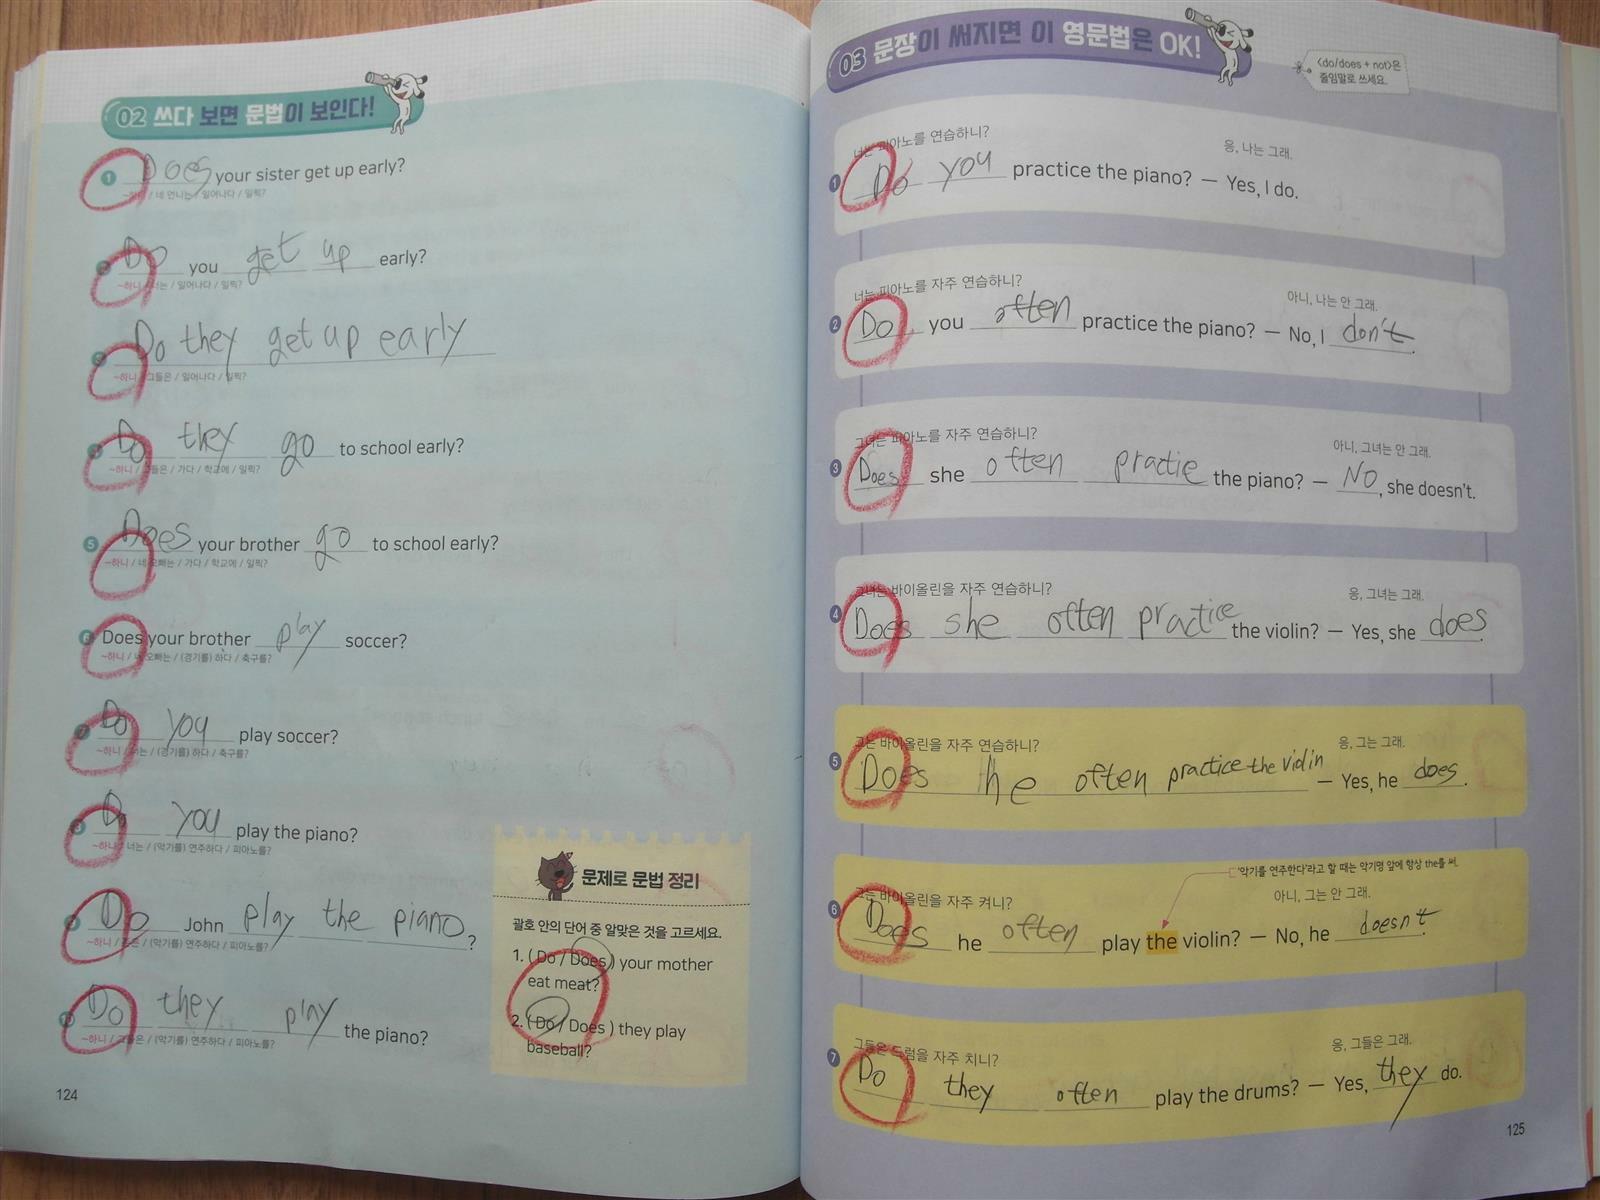 02 쓰다 보면 문법이 보인다!
1 Does your sister get up early?
~하니 / 네 언니는 / 일어나다 / 일찍?
Do you get up early?
~하니 / 너는 / 일어나다 / 일찍?
Do they get up early
~하니 / 그들은 / 일어나다 / 일찍?
Do they go to school early?
~하니 / 그들은 / 가다 / 학교에 / 일찍?
5 Does your brother go to school early?
~하니 / 네 오빠는 / 가다 / 학교에 / 일찍?
6 Does your brother play soccer?
~하니 / 네 오빠는 / (경기를) 하다 / 축구를?
7 Do you play soccer?
~하니 / 너는 / (경기를) 하다 / 축구를?
8 Do you play the piano?
~하니 / 너는 / (악기를) 연주하다 / 피아노를?
Do John play the piano?
~하니 / 존은 / (악기를) 연주하다 / 피아노를?
Do they play the piano?
~하니 / 그들은 / (악기를) 연주하다 / 피아노를?
문제로 문법 정리
괄호 안의 단어 중 알맞은 것을 고르세요.
1. ( Do / Does ) your mother
eat meat?
2. ( Do / Does ) they play
baseball?
124
03 문장이 써지면 이 영문법은 OK!
<do/does + not>은
줄임말로 쓰세요.
너는 피아노를 연습하니? 응, 나는 그래.
1 Do you practice the piano? – Yes, I do.
너는 피아노를 자주 연습하니? 아니, 나는 안 그래.
2 Do you often practice the piano? – No, I don't.
그녀는 피아노를 자주 연습하니? 아니, 그녀는 안 그래.
3 Does she often practie the piano? – No, she doesn't.
그녀는 바이올린을 자주 연습하니? 응, 그녀는 그래.
4 Does she often practice the violin? – Yes, she does.
그는 바이올린을 자주 연습하니? 응, 그는 그래.
5 Does he often practice the violin – Yes, he does.
'악기를 연주한다'라고 할 때는 악기명 앞에 항상 the를 써.
그는 바이올린을 자주 켜니? 아니, 그는 안 그래.
6 Does he often play the violin? – No, he doesn't.
그들은 드럼을 자주 치니? 응, 그들은 그래.
7 Do they often play the drums? – Yes, they do.
125